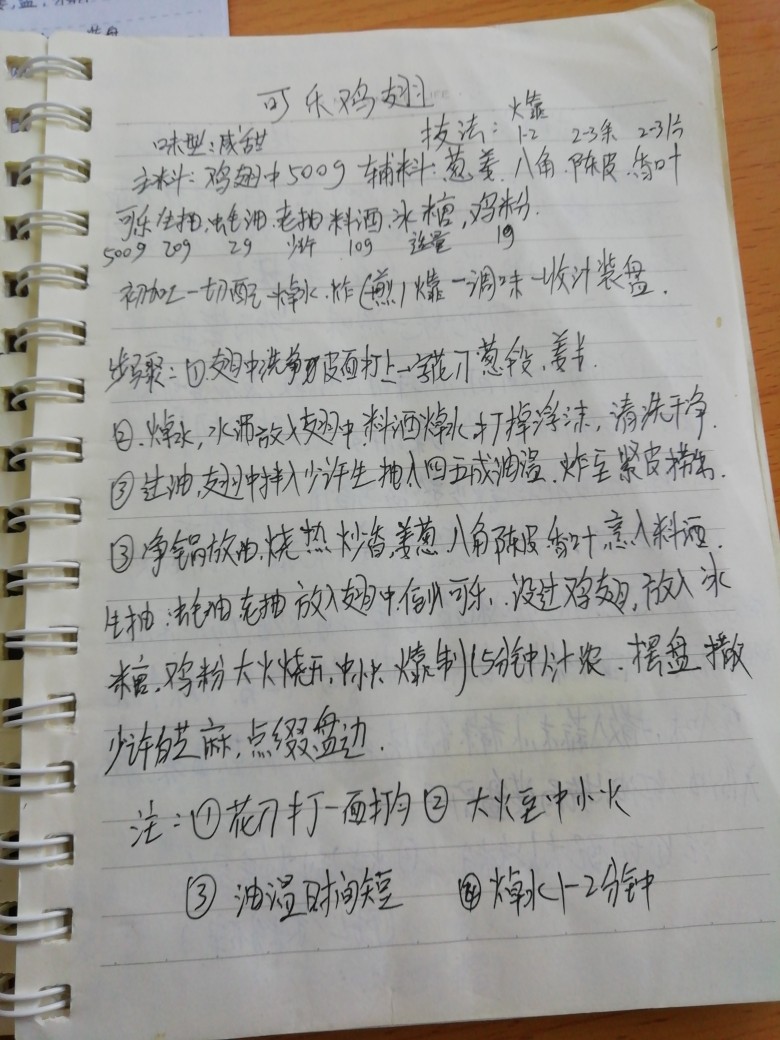 可乐鸡翅
味型:咸甜 技法:火靠
1-2 2-3条 2-3片
主料:鸡翅中500g 辅料:葱姜.八角.陈皮.香叶
可乐 生抽.蚝油.老抽 料酒.冰糖,鸡粉.
500g 20g 2g 少许 10g 适量 1g
初加工一切配一焯水.炸(煎)火靠一调味一收汁装盘.
步骤:①.翅中洗净皮面打上一字花刀 葱段.姜片.
②.焯水,水沸放入翅中.料酒焯水 打掉浮沫,清洗干净.
③过油,翅中拌入少许生抽入四五成油温.炸至紧皮捞出.
③净锅放油.烧热炒香,姜葱.八角陈皮香叶烹入料酒.
生抽.蚝油老抽放入翅中倒入可乐.没过鸡翅,放入冰
糖,鸡粉大火烧开,中小火㸆制15分钟汁浓.摆盘撒
少许白芝麻,点缀盘边.
注:①花刀打一面打匀 ② 大火至中小火
③ 油温时间短 ④焯水1-2分钟